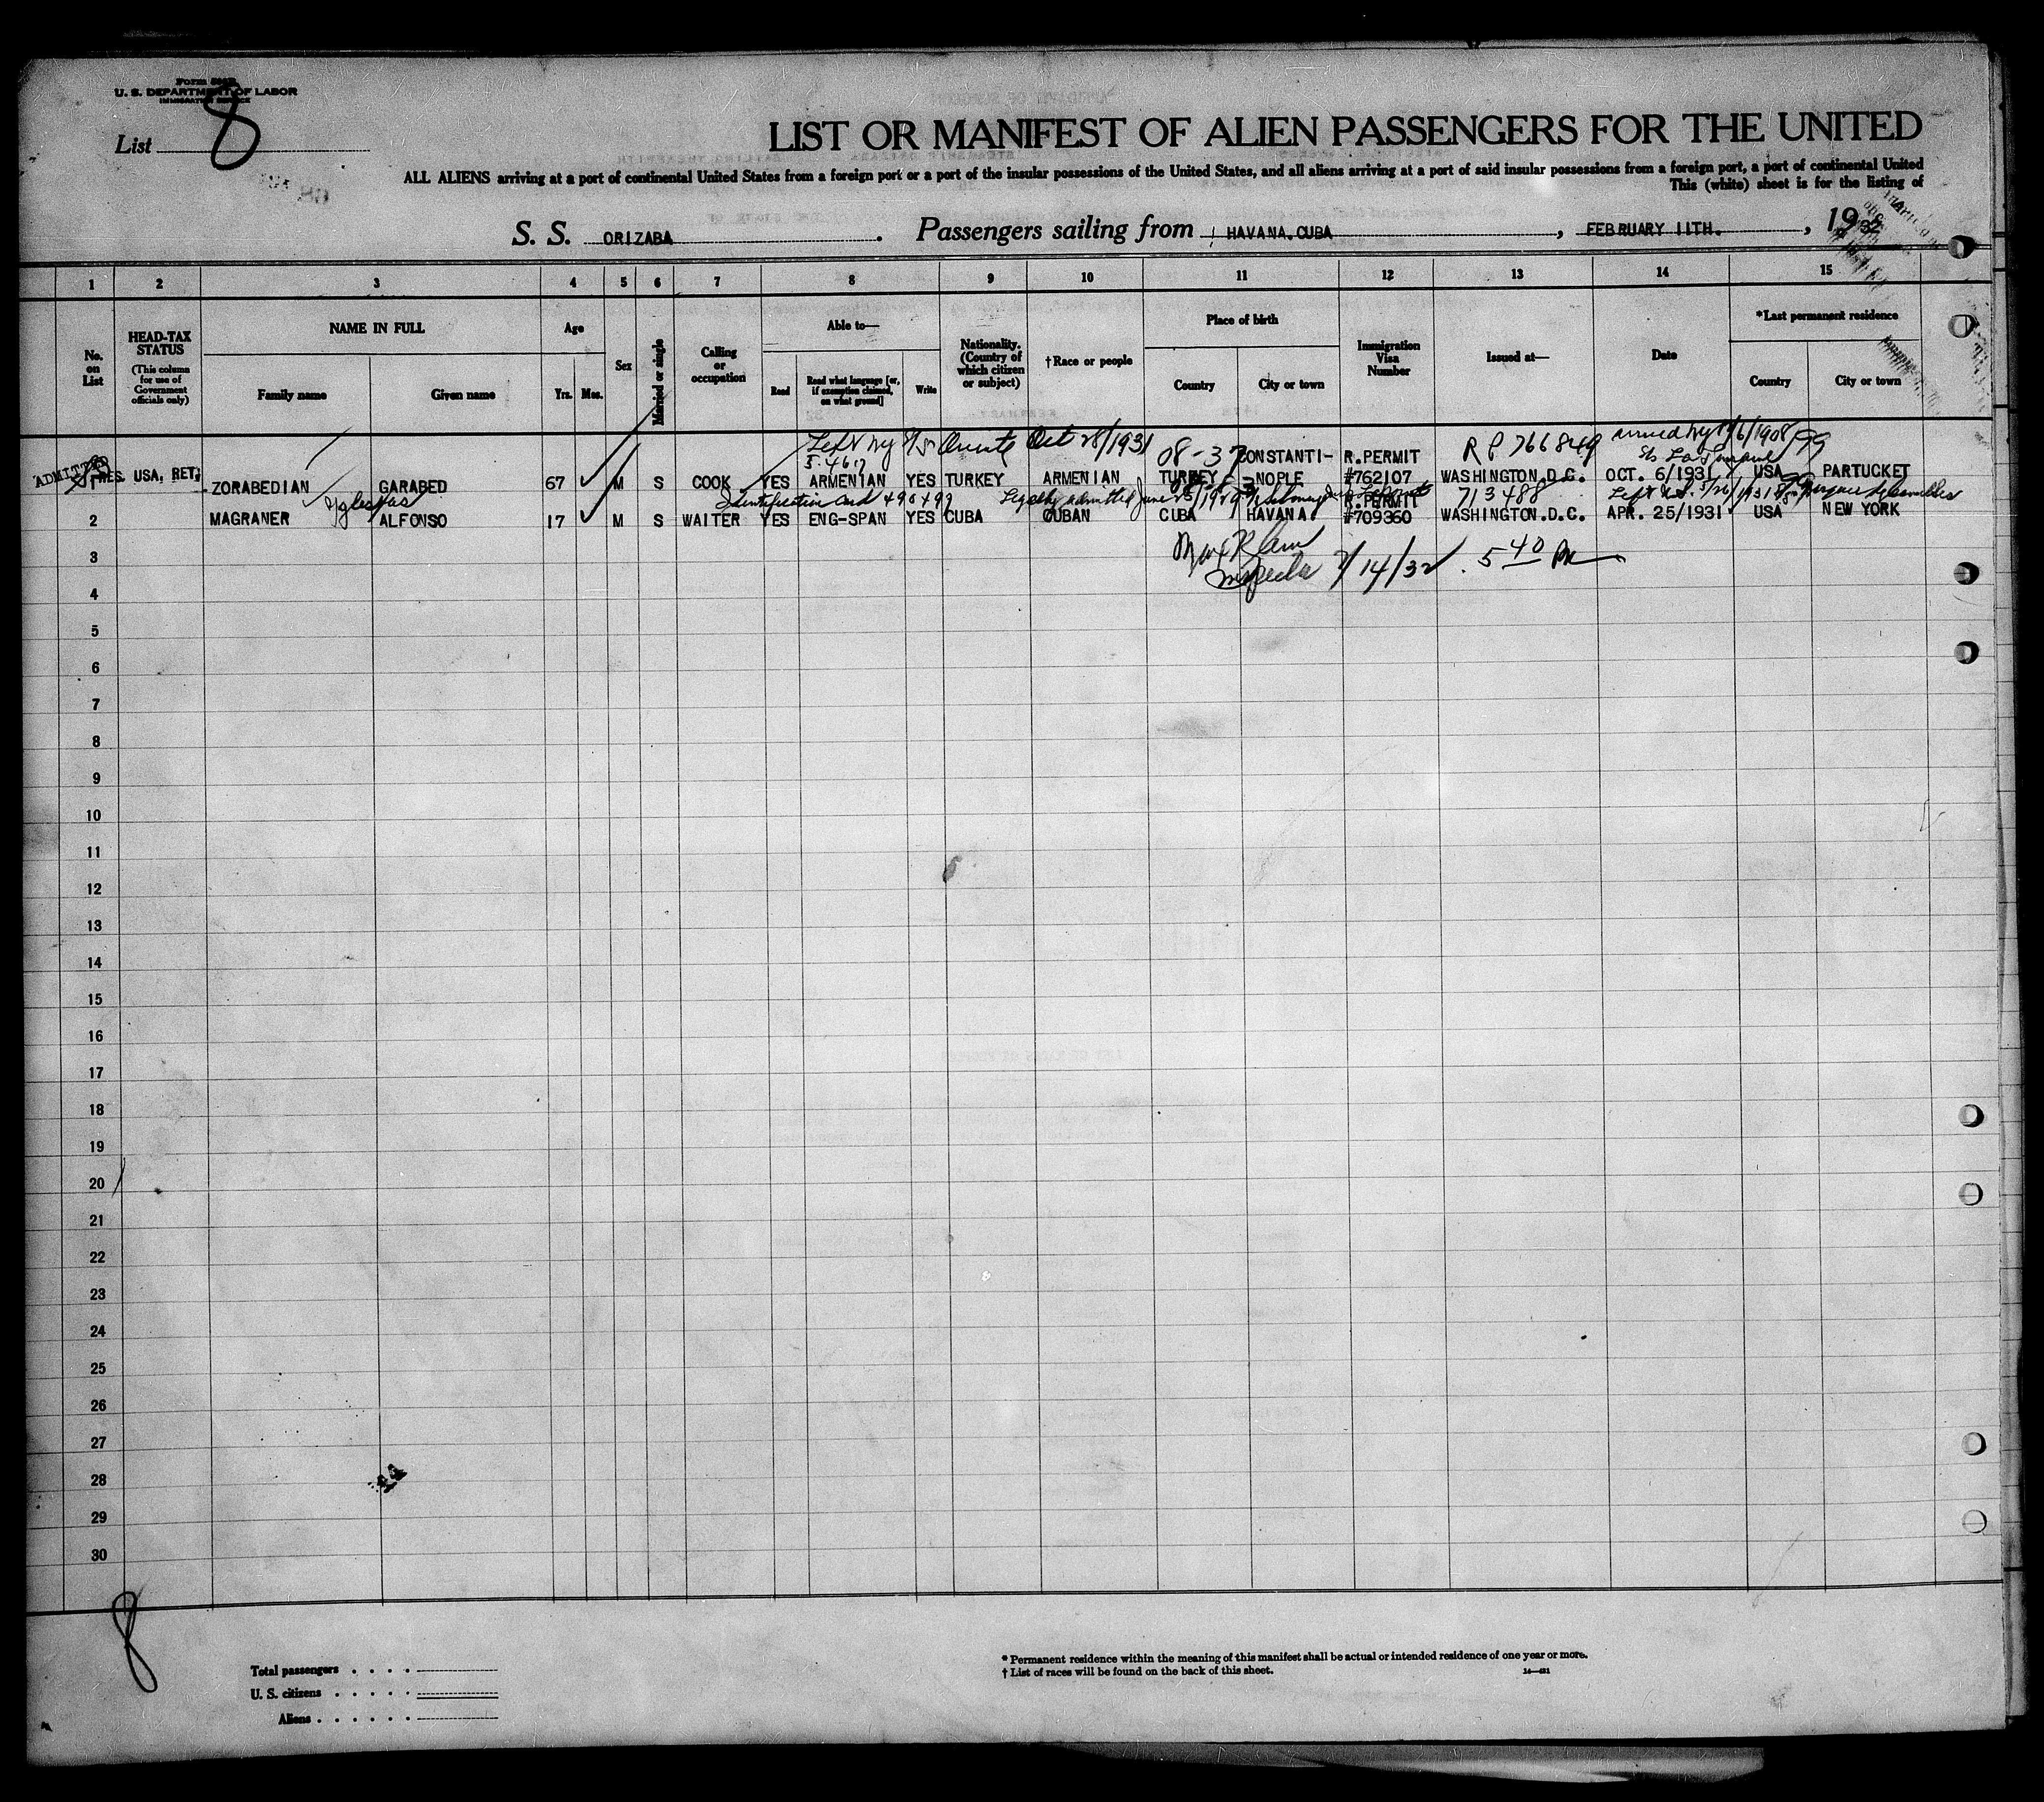 Form 500B
U. S. DEPARTMENT OF LABOR
IMMIGRATION SERVICE
List 8
LIST OR MANIFEST OF ALIEN PASSENGERS FOR THE UNITED
ALL ALIENS arriving at a port of continental United States from a foreign port or a port of the insular possessions of the United States, and all aliens arriving at a port of said insular possessions from a foreign port, a port of continental United
This (white) sheet is for the listing of
S. S. ORIZABA. Passengers sailing from HAVANA.CUBA, FEBRUARY 11TH., 1932
1 2 3 4 5 6 7 8 9 10 11 12 13 14 15
No. on List
HEAD-TAX STATUS
(This column for use of Government officials only)
NAME IN FULL
Family name
Given name
Age
Yrs. Mos.
Sex
Married or single
Calling or occupation
Able to—
Read
Read what language [or, if exemption claimed, on what ground]
Write
Nationality. (Country of which citizen or subject)
†Race or people
Place of birth
Country
City or town
Immigration Visa Number
Issued at—
Date
*Last permanent residence
Country
City or town
Left NY S/S Oriente Oct 28/1931 08-37 RP 766849 arrived NY 6/1908 99
5-4617 CONSTANTI- R.PERMIT S/s La Touraine
ADMITTED
1 RES. USA, RET; ZORABEDIAN GARABED 67 M S COOK YES ARMENIAN YES TURKEY ARMENIAN TURKEY NOPLE #762107 WASHINGTON.D.C. OCT. 6/1931 USA PARTUCKET
Iglesias Identification Card 490499 Legally admitted June 25/1929 R.PERMIT 713488 Left U.S. 5/26/1931
2 MAGRANER ALFONSO 17 M S WAITER YES ENG-SPAN YES CUBA CUBAN CUBA HAVANA #709360 WASHINGTON.D.C. APR. 25/1931 USA NEW YORK
3
Inspector 2/14/32. 5 40 PM
4
5
6
7
8
9
10
11
12
13
14
15
16
17
18
19
20
21
22
23
24
25
26
27
28
29
30
8
Total passengers . . . .
U. S. citizens . . . . .
Aliens . . . . . .
* Permanent residence within the meaning of this manifest shall be actual or intended residence of one year or more.
† List of races will be found on the back of this sheet. 14—481